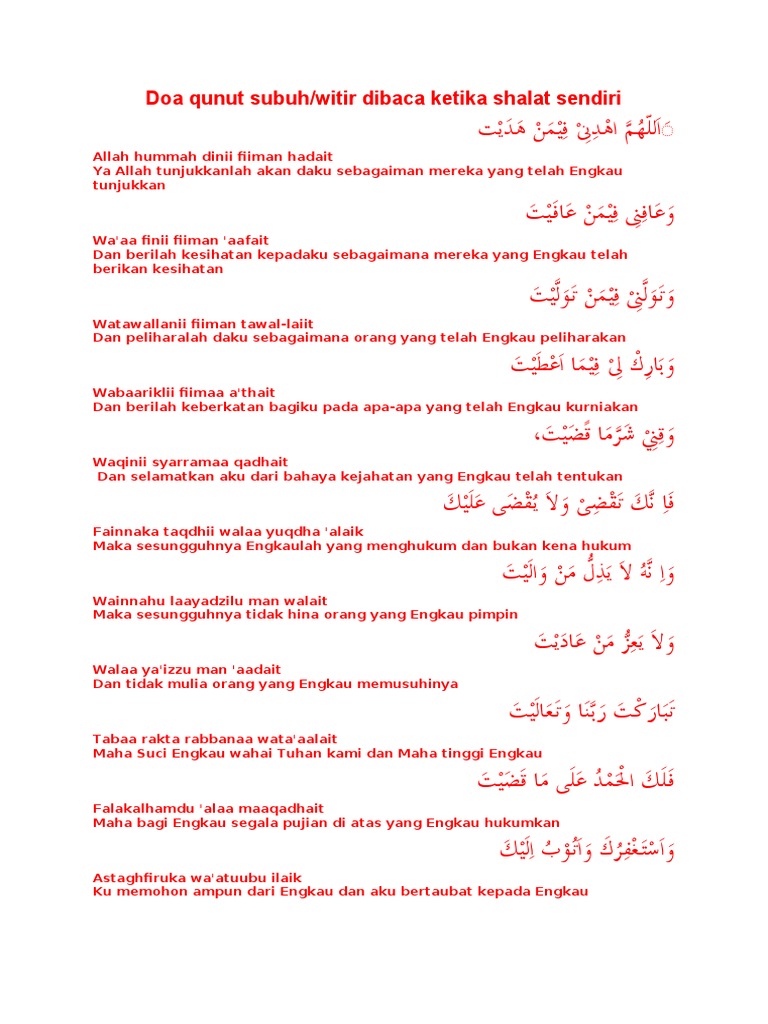 Doa qunut subuh/witir dibaca ketika shalat sendiri
َاَللّهُمَّ اهْدِنِىْ فِيْمَنْ هَدَيْت
Allah hummah dinii fiiman hadait
Ya Allah tunjukkanlah akan daku sebagaiman mereka yang telah Engkau
tunjukkan
وَعَافِنِى فِيْمَنْ عَافَيْتَ
Wa'aa finii fiiman 'aafait
Dan berilah kesihatan kepadaku sebagaimana mereka yang Engkau telah
berikan kesihatan
وَتَوَلَّنِىْ فِيْمَنْ تَوَلَّيْتَ
Watawallanii fiiman tawal-laiit
Dan peliharalah daku sebagaimana orang yang telah Engkau peliharakan
وَبَارِكْ لِىْ فِيْمَا اَعْطَيْتَ
Wabaariklii fiimaa a'thait
Dan berilah keberkatan bagiku pada apa-apa yang telah Engkau kurniakan
وَقِنِيْ شَرَّمَا قًضَيْتَ،
Waqinii syarramaa qadhait
Dan selamatkan aku dari bahaya kejahatan yang Engkau telah tentukan
فَاِ نَّكَ تَقْضِىْ وَلاَ يُقْضَى عَلَيْكَ
Fainnaka taqdhii walaa yuqdha 'alaik
Maka sesungguhnya Engkaulah yang menghukum dan bukan kena hukum
وَاِ نَّهُ لاَ يَذِلُّ مَنْ وَالَيْتَ
Wainnahu laayadzilu man walait
Maka sesungguhnya tidak hina orang yang Engkau pimpin
وَلاَ يَعِزُّ مَنْ عَادَيْتَ
Walaa ya'izzu man 'aadait
Dan tidak mulia orang yang Engkau memusuhinya
تَبَارَكْتَ رَبَّنَا وَتَعَالَيْتَ
Tabaa rakta rabbanaa wata'aalait
Maha Suci Engkau wahai Tuhan kami dan Maha tinggi Engkau
فَلَكَ الْحَمْدُ عَلَى مَا قَضَيْتَ
Falakalhamdu 'alaa maaqadhait
Maha bagi Engkau segala pujian di atas yang Engkau hukumkan
وَاَسْتَغْفِرُكَ وَاَتُوْبُ اِلَيْكَ
Astaghfiruka wa'atuubu ilaik
Ku memohon ampun dari Engkau dan aku bertaubat kepada Engkau